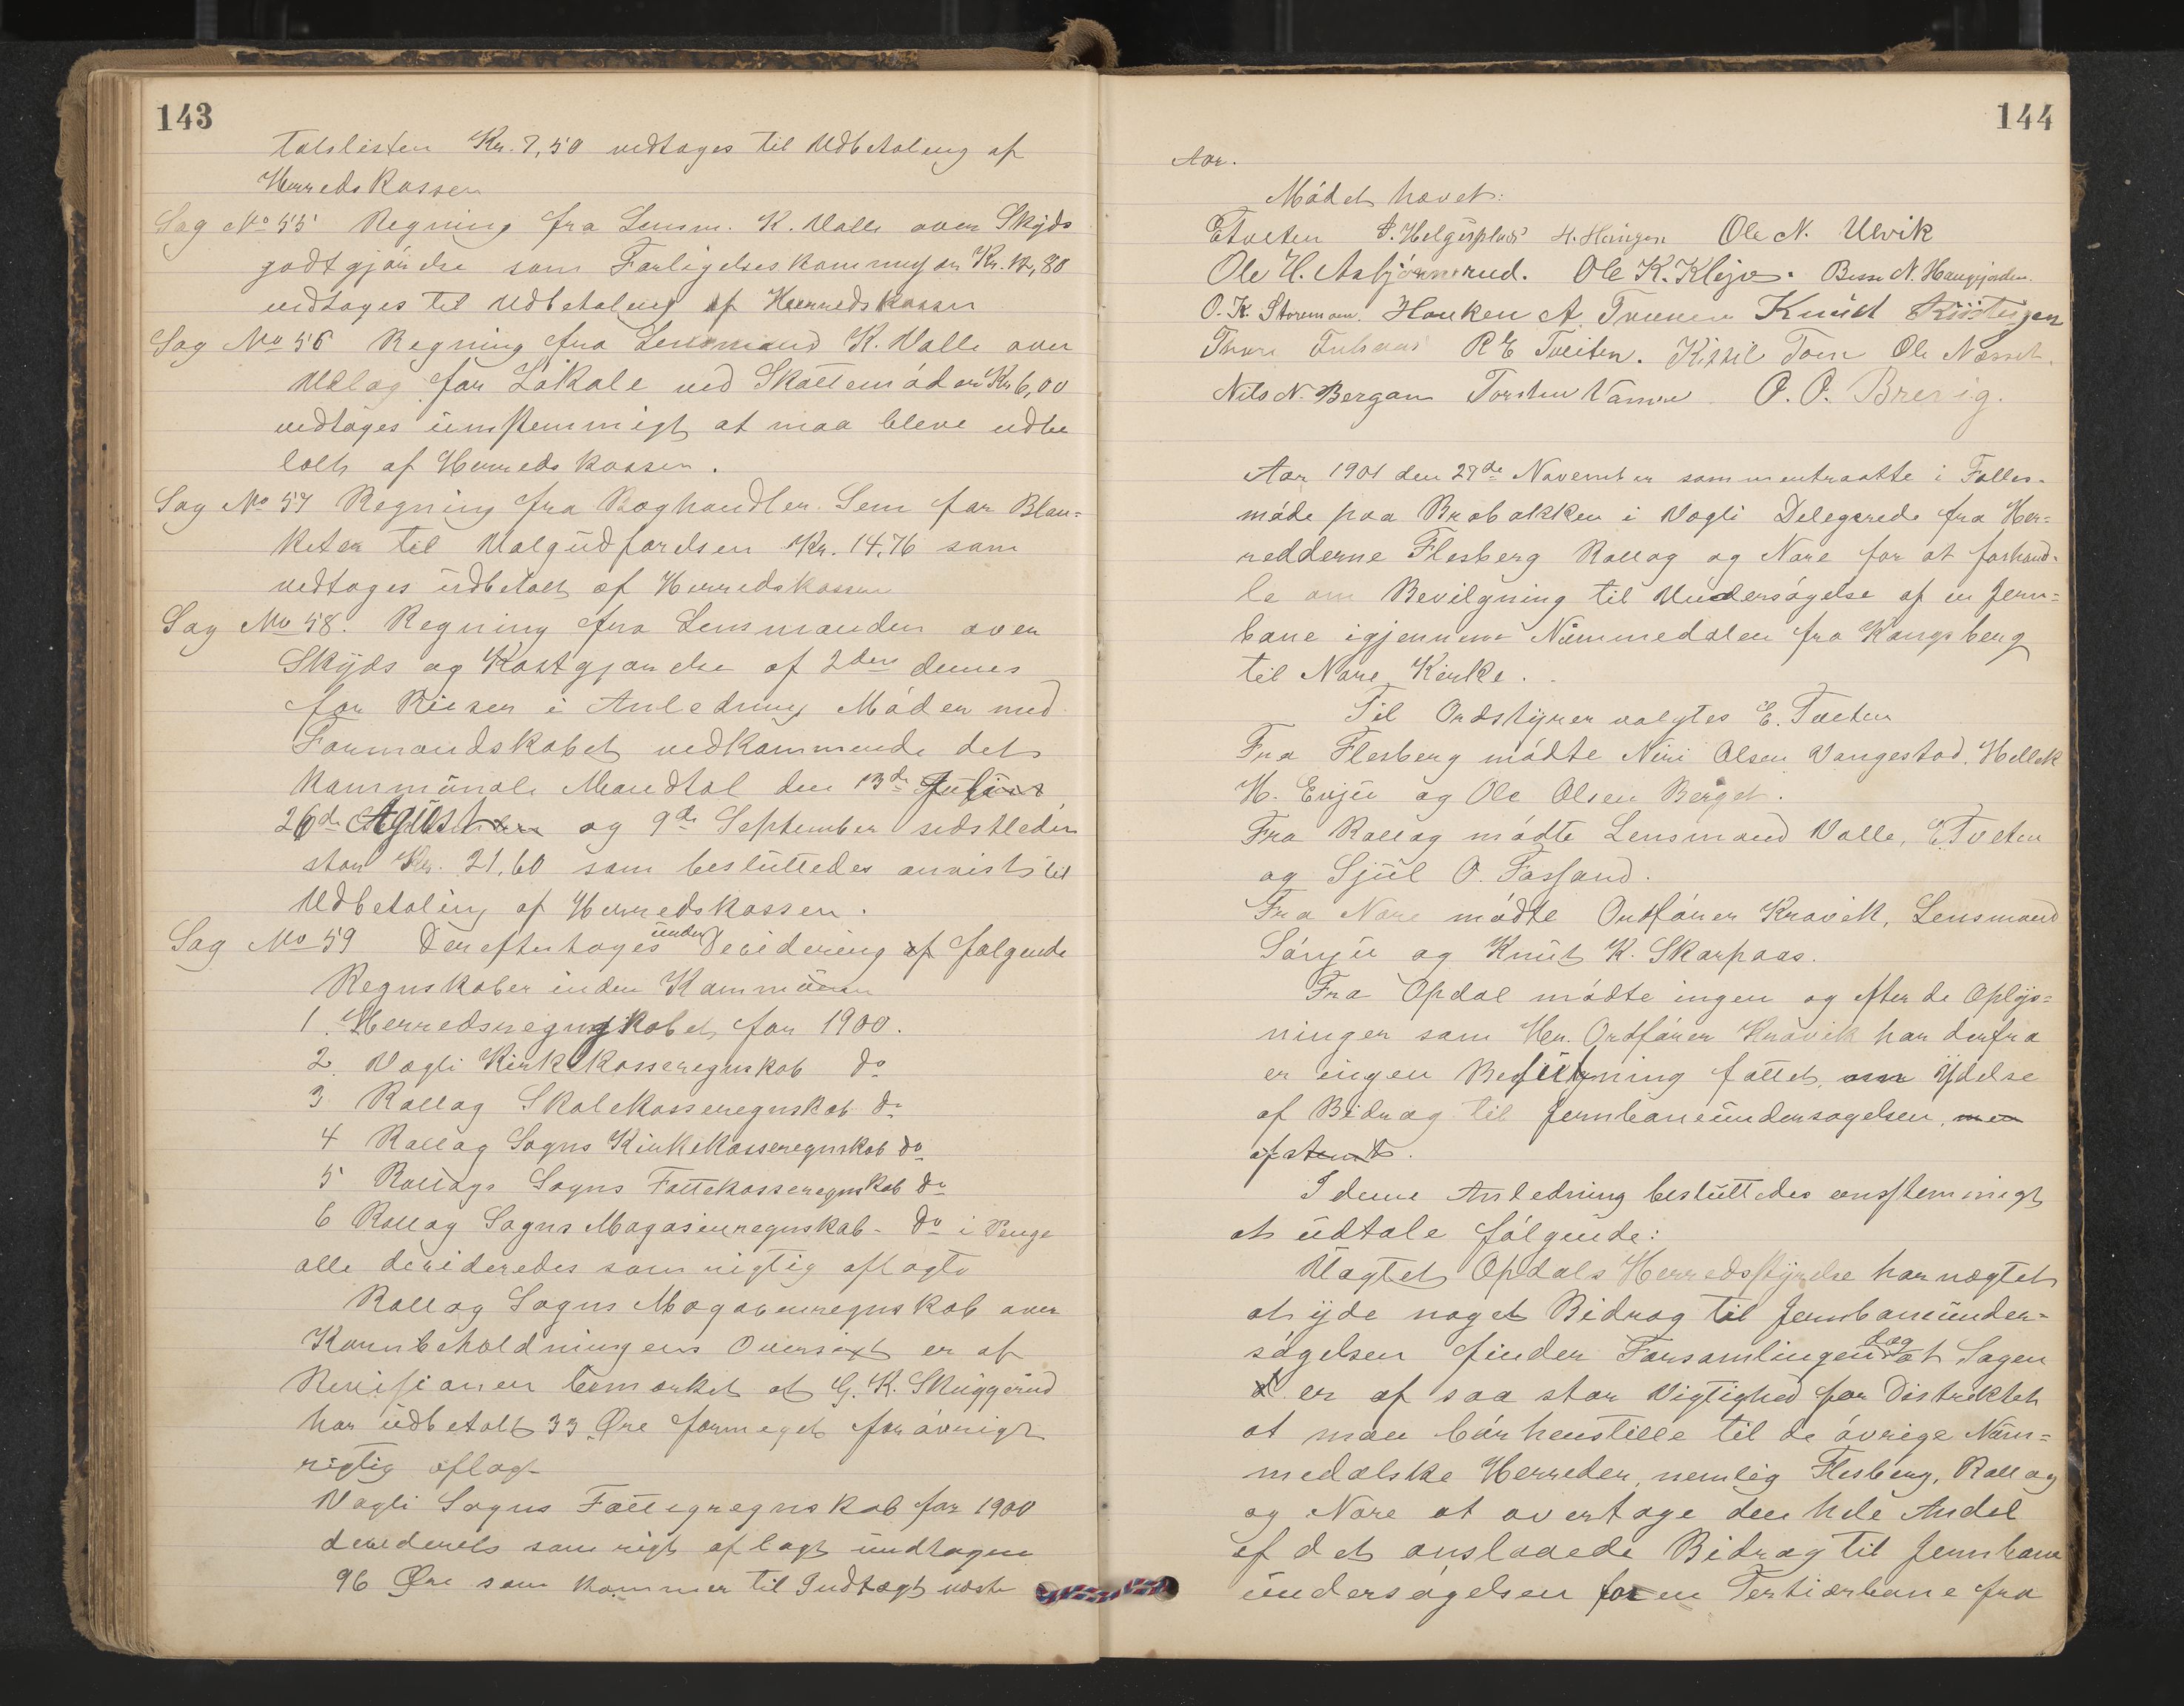 143
talslisten Kr. 7,50 vedtages til Udbetaling af
Herredskassen
Sag No 55 Regning fra Lensm. K. Valle over Skyds
godtgjörelse som Forligelseskommissær Kr. 12,80
vedtages til Udbetaling af Herredskassen
Sag No 56 Regning fra Lensmand K. Valle over
Udlæg for Lokale ved Skattemöder Kr 6,00
vedtages eenstemmigt at maa bleve udbe
talt af Herredskassen.
Sag No 57 Regning fra Boghandler Sem for Blan=
keter til Valgudfordelsen Kr. 14,76 som
vedtages udbetalt af Herredskassen
Sag No 58. Regning fra Lensmanden over
Skyds og Kostgjörelse af 2den dennes
for Reisen i Anledning Möder med
Formandskabet vedkommende det
kommunale Mandtal den 13de Julius
26de Agust og 9de September sidstleden
stor Kr. 21,60 som besluttedes anvist til
Udbetaling af Herredskassen.
Sag No 59 Derefter toges under Decidering af følgende
Regnskaber inden Kommunen
1. Herredsregnskabet for 1900.
2. Vægli Kirkekasseregnskab do
3. Rollag Skolekasseregnskab do
4 Rollag Sogns Kirkekasseregnskab do
5 Rollags Sogns Fattekasseregnskab do
6 Rollag Sogns Magasinregnskab - do i Penge
alle decideredes som rigtig aflagte
Rollag Sogns Magasinregnskab over
Kornbeholdningens Oversigt er af
Revisionen bemærket at G. K. Skuggerud
har udbetalt 33 Øre formeget forövrigt
rigtig aflagt
Vægli Sogns Fattigregnskab for 1900
decideredes som rigt aflagt undtagen
96 Øre som kommer til Indtægt næste
144
Aar.
Mödet hævet:
ETveten S. Helgesplads H. Haugen Ole N. Ulvik
Ole H. Asbjörnsrud. Ole K. Klejvo. N. Haugjorden.
O. K. Storemoen. Haaken A. Traaen Knud Kristengen
Thore R E Tveiten. Kittil Toen Ole Næsset.
Nils N. Bergan Torsten Vaman O. O. Brevig.
Aar 1901 den 27de November sammentraatte i Falles-
möde paa Brobakken i Vægli Delegerede fra Her=
redderne Flesberg Rollag og Nore for at forhand-
le om Bevilgning til Undersögelse af en Jern=
bane igjennem Nummedalen fra Kongsberg
til Nore Kirke.
Til Ordstyrer valgtes E. Tveten
Fra Flesberg mödte Niri Olsen Vangestad, Hellek
H. Evju og Ole Olsen Berget.
Fra Rollag mödte Lensmand Valle, E Tveten
og Sjul O. Fossand.
Fra Nore mödte Ordförer Kravik, Lensmand
Sönju og Knut K. Skarpaas.
Fra Opdal mödte ingen og efter de Oplys=
ninger som Hr. Ordförer Kravik har derfra
er ingen Beslutning fattet om Ydelse
af Bidrag til Jernbaneundersøgelsen, men
afstemt.
I denne Anledning besluttedes eenstemmigt
at udtale fölgende:
Uagtet Opdals Herredsstyrelse har nægtet
at yde noget Bidrag til Jernbaneunder=
sögelsen finder Forsamlingen dog at Sagen
er af saa stor Vigtighed for Distriktet
at man bör henstille til de övrige Num=
medalske Herreder, nemlig Flesberg, Rollag
og Nore at overtage den hele Andel
af det anslaaede Bidrag til Jernbane
undersögelsen for en Tertiærbane fra